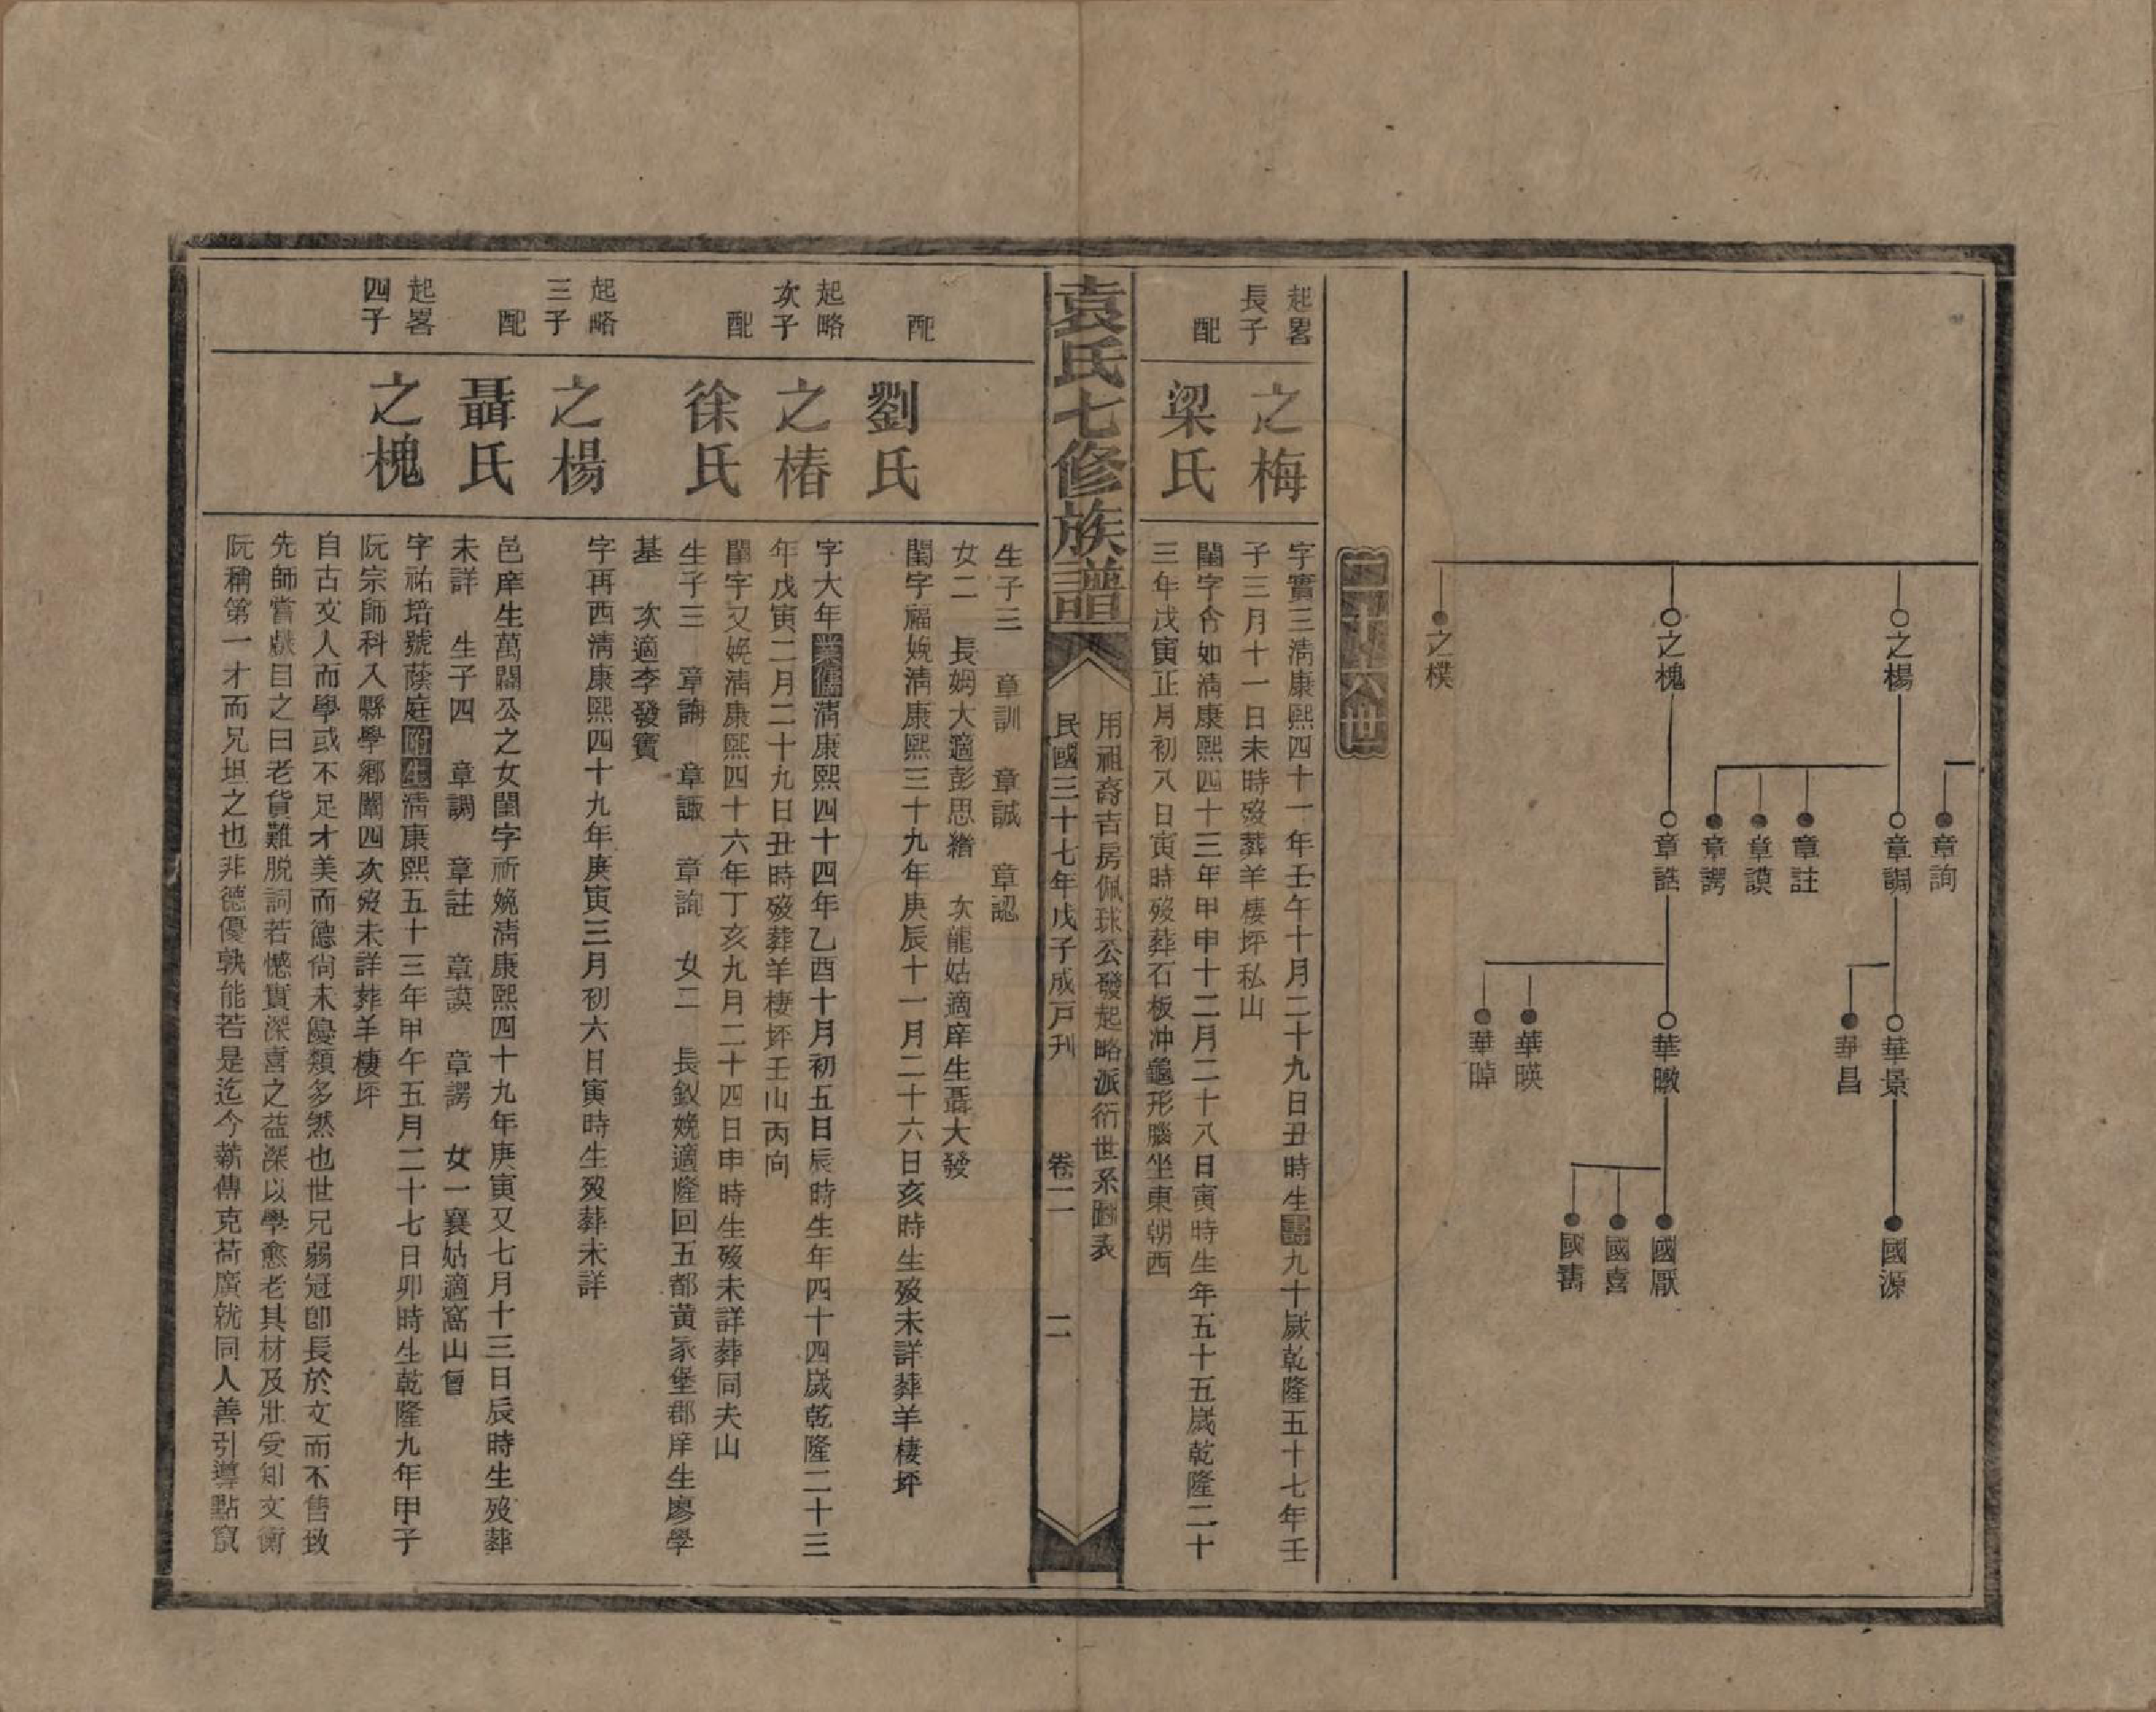 之楊
之槐
之樸
章詢
章調
章註
章謨
章諤
章誥
華景
華昌
華暾
華暎
華晫
國源
國厭
國喜
國壽
二十六世
起畧
長子
之梅
字實三淸康熙四十一年壬午十月二十九日丑時生壽九十歲乾隆五十七年壬
子三月十一日未時歿葬羊棲坪私山
配
梁氏
閨字含如淸康熙四十三年甲申十二月二十八日寅時生年五十五歲乾隆二十
三年戊寅正月初八日寅時歿葬石板冲龜形腦坐東朝西
袁氏七修族譜
用祖裔吉房佩球公發起略派衍世系圖表
民國三十七年戊子成戸刋
卷二
二
生子三 章訓 章誠 章認
女二 長姆大適彭思緒 次龍姑適庠生聶大發
配
劉氏
閨字福娩淸康熙三十九年庚辰十一月二十六日亥時生歿未詳葬羊棲坪
起略
次子
之椿
字大年業儒淸康熙四十四年乙酉十月初五日辰時生年四十四歲乾隆二十三
年戊寅二月二十九日丑時歿葬羊棲坪壬山丙向
配
徐氏
閨字又娩淸康熙四十六年丁亥九月二十四日申時生歿未詳葬同夫山
生子三 章誨 章諏 章詢 女二 長釵娩適隆回五都黃家堡郡庠生廖學
基 次適李發寶
起略
三子
之楊
字再西淸康熙四十九年庚寅三月初六日寅時生歿葬未詳
配
聶氏
邑庠生萬閣公之女閨字祈娩淸康熙四十九年庚寅又七月十三日辰時生歿葬
未詳 生子四 章調 章註 章謨 章諤 女一襄姑適窩山曾
起畧
四子
之槐
字祐培號蔭庭附生淸康熙五十三年甲午五月二十七日卯時生乾隆九年甲子
阮宗師科入縣學鄉闈四次歿未詳葬羊棲坪
自古文人而學或不足才美而德尙未優類多然也世兄弱冠卽長於文而不售致
先師嘗戲目之曰老貨難脫詞若憾實深喜之益深以學愈老其材及壯受知文衡
阮稱第一才而兄坦之也非德優孰能若是迄今薪傳克荷廣就同人善引導點竄